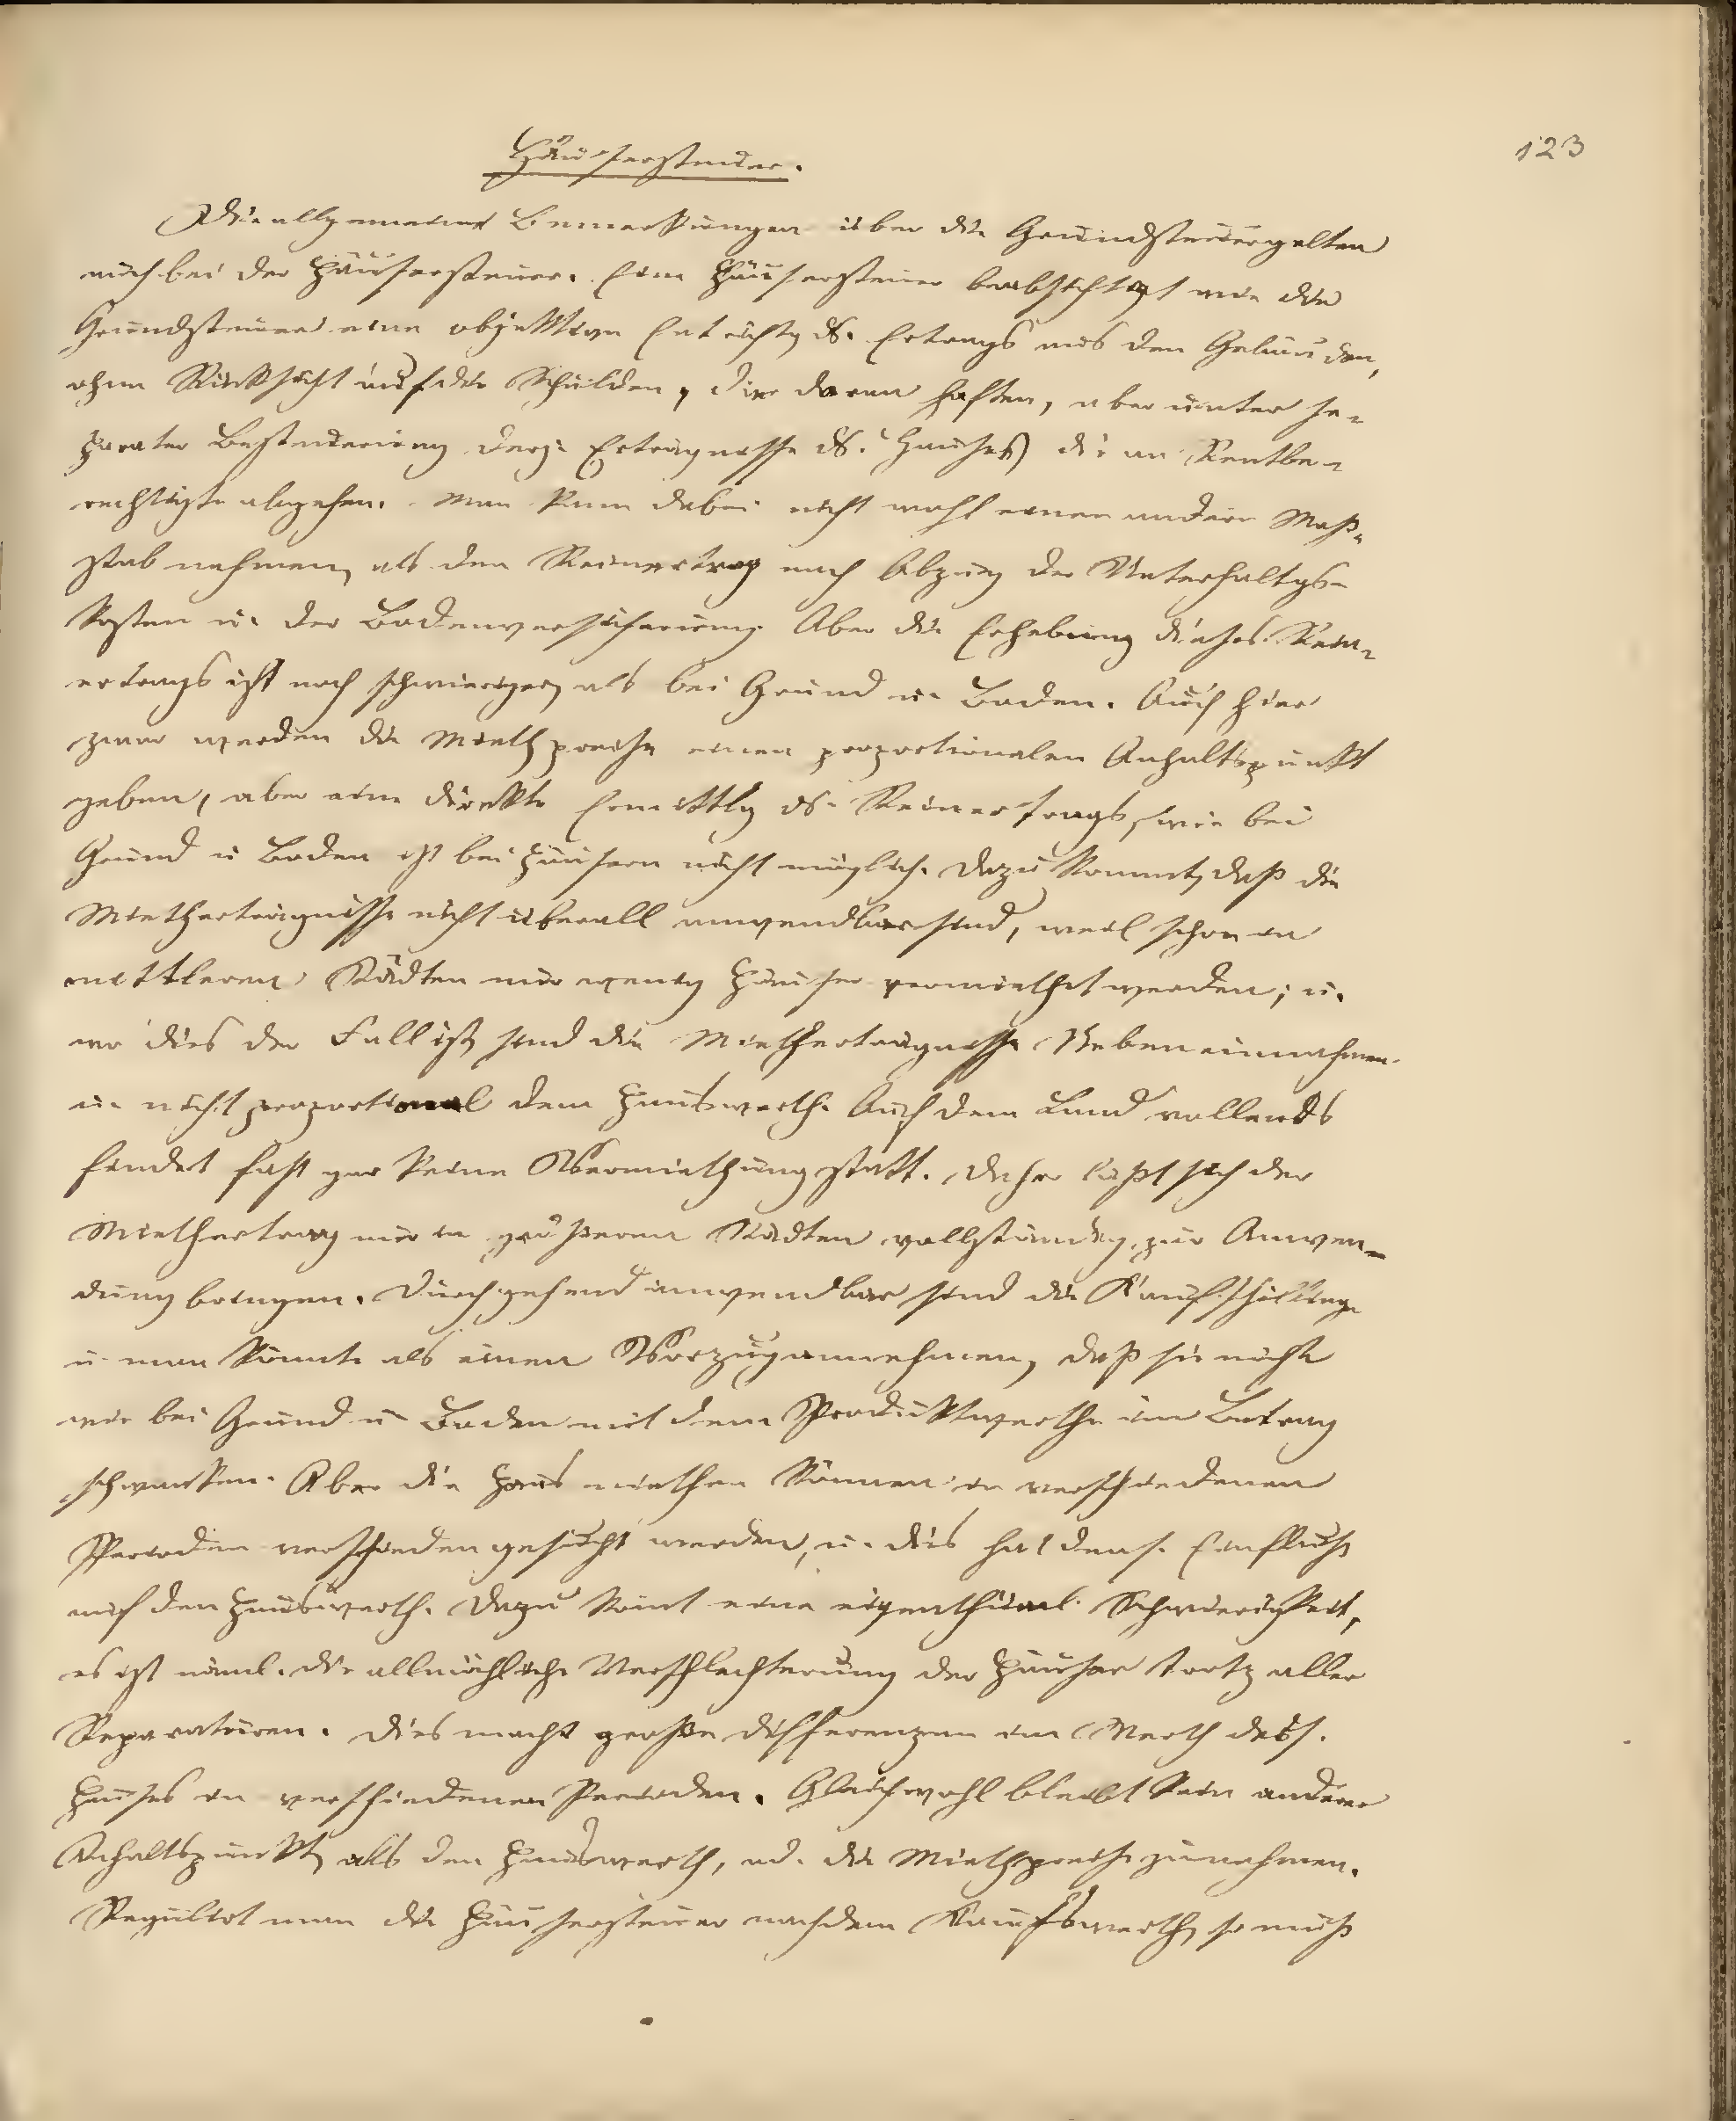 123
Häusersteuer.
Die allgemeinen Bemerkungen über die Grundsteuer gelten
auch bei der Häusersteuer. Eine Häusersteuer beabsichtigt wie die
Grundsteuer eine objektive ds. Ertrags aus den Gebäuden,
ohne Rücksicht auf die Schulden, die daran haften, aber unter se-
parater Besteuerung derj. Erträgnisse ds. Hauses, die an Rentbe-
rechtigte abgehen. Man kann dabei nicht wohl einen andern Maß-
stab nehmen, als den Reinertrag nach Abzug der Unterhaltgs-
kosten u. der Bodenversicherung. Aber die Erhebung dieses Rein-
ertrags ist noch schwieriger, als bei Grund u. Boden. Auch hier
zwar werden die Miethpreise einen proportionalen Anhaltspunkt
geben, aber eine direkte Ermittlg ds. Reinertrags, wie bei
Grund u Boden ist bei Häusern nicht möglich. Dazu kommt, daß die
Mietherträgnisse nicht überall anwendbar sind, weil schon in
mittleren Städten nur wenig Häuser vermiethet werden; u.
wo dies der Fall ist, sind die Mietherträgnisse Nebeneinnahmen
u. nicht proportional dem Hauswerth. Auf dem Land vollends
findet fast gar keine Vermiethung statt. Daher läßt sich der
Miethertrag nur in größeren Städten vollständig zur Anwen-
dung bringen. Durchgehend anwendbar sind die Kaufschillinge
u. man könnte als einen Vorzug annehmen, daß sie nicht
wie bei Grund u. Boden mit dem Produktwerthe im Betrag
schwanken. Aber die Hausmiethen können in verschiedenen
Perioden verschieden gesucht werden, u. dies hat dens. Einfluß
auf den Hauswerth. Dazu komt eine eigenthüml. Schwierigkeit,
es ist näml. die allmähliche Verschlechterung der Häuser trotz aller
Reparaturen. Dies macht große Differenzen im Werth dess.
Hauses in verschiedenen Perioden. Gleichwohl bleibt kein anderer
Anhaltspunkt, als den Hauswerth, od. die Miethpreise zu nehmen.
Regulirt man die Häusersteuer nach dem Kaufswerth, so muß